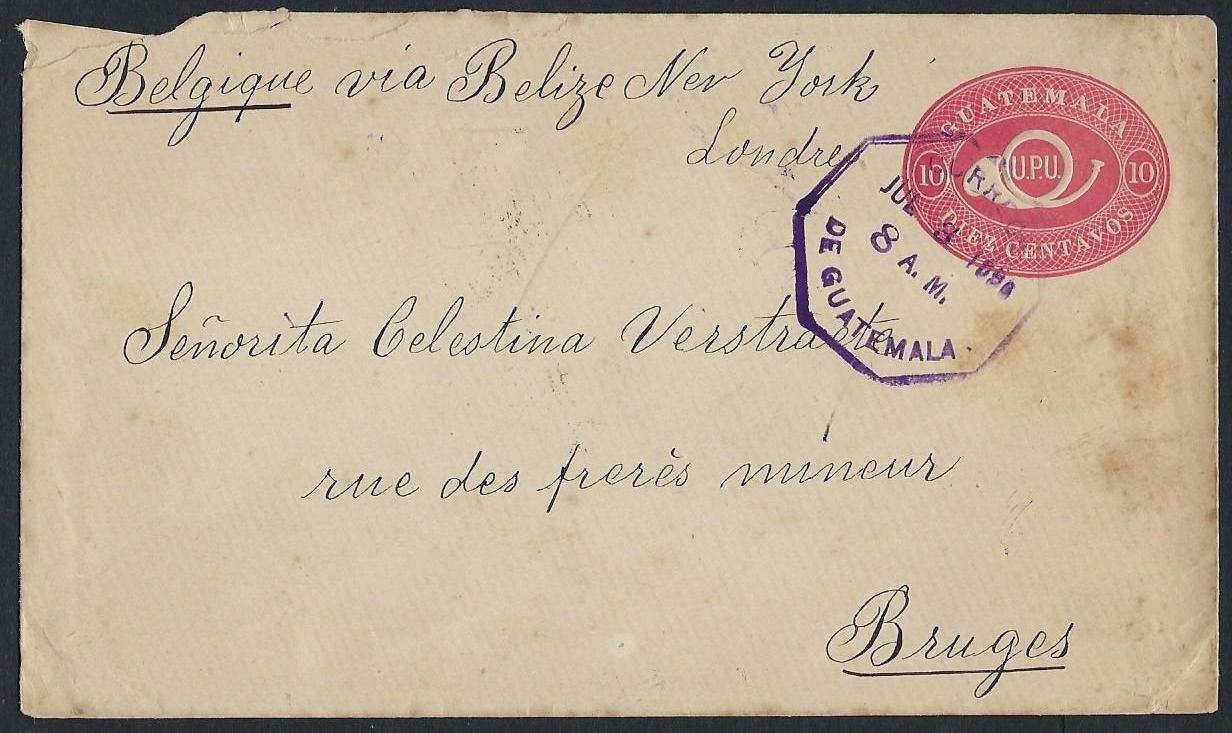 Belgique via Belize New York
Londres
GUATEMALA
10 U.P.U. 10
DIEZ CENTAVOS
CORREOS
JUL 8
8 A. M.
DE GUATEMALA.
Señorita Celestina Verstraete
rue des frerès mineur
Bruges